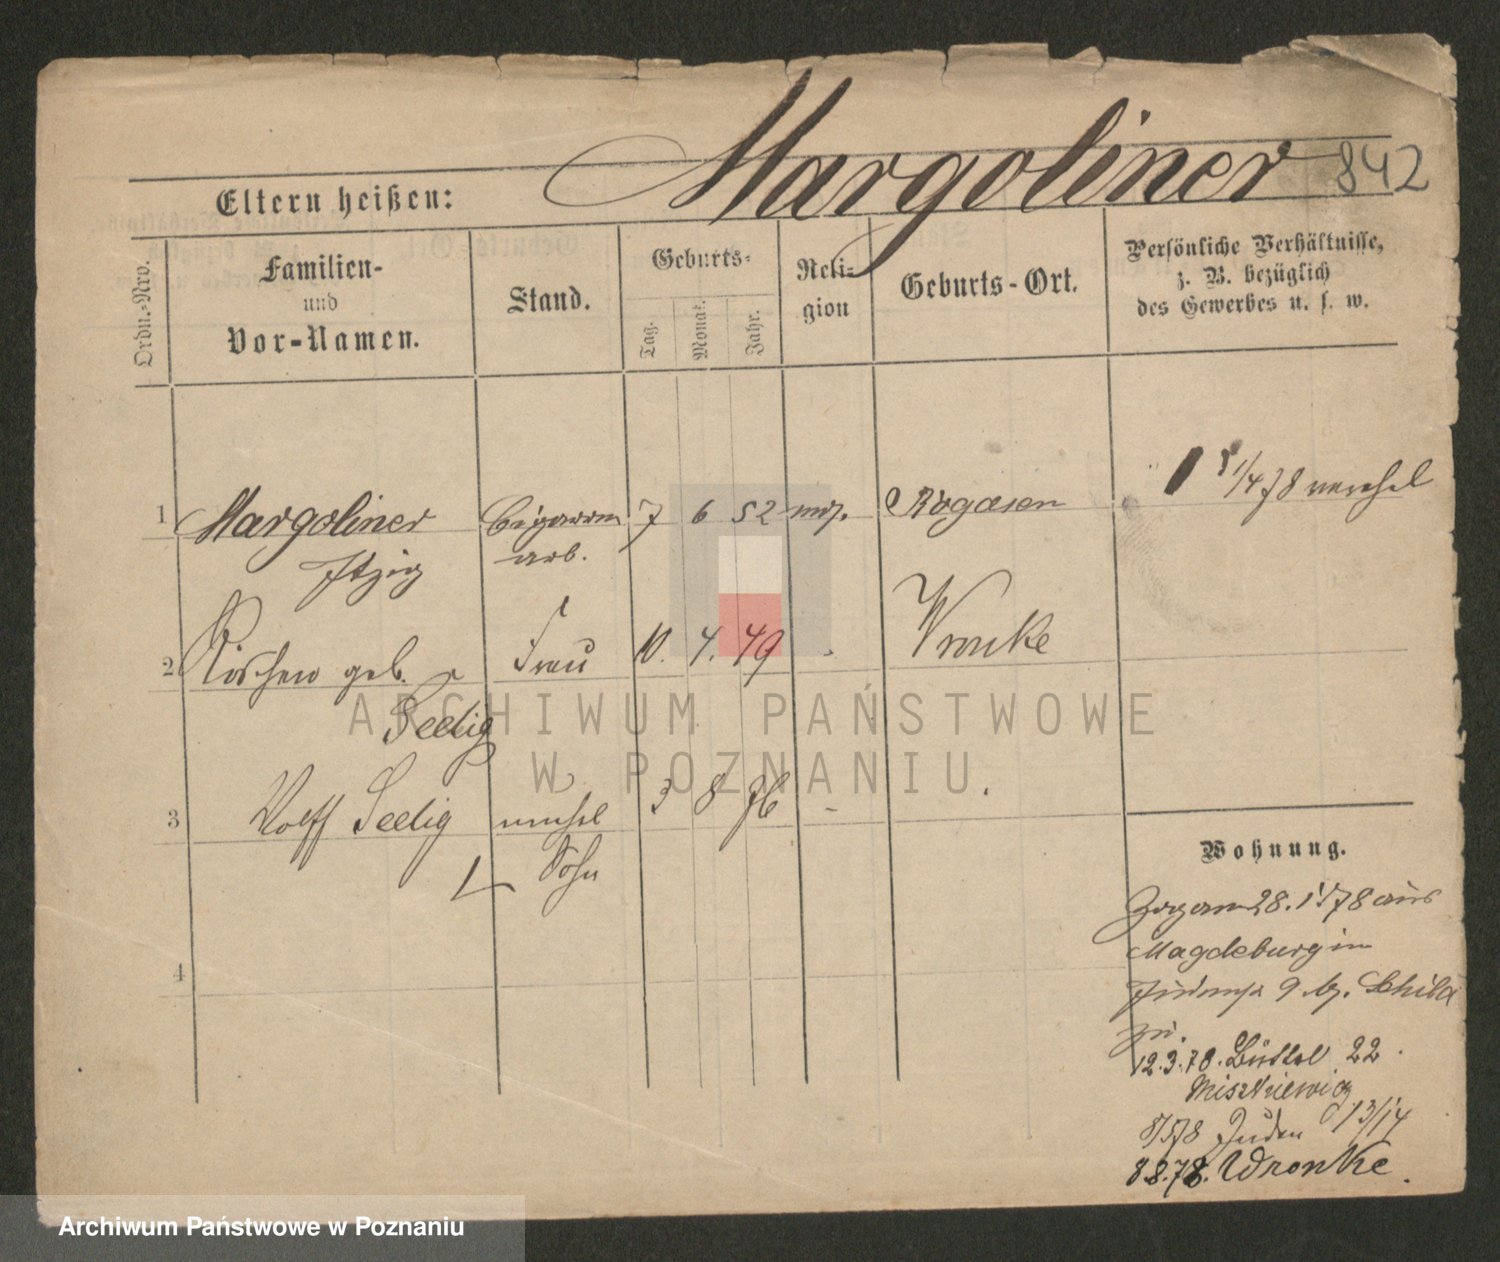 Margoliner 842
Eltern heißen:
Ordn.-Nro.
Familien-
und
Vor-Namen.
Stand.
Geburts-
Tag.
Monat.
Jahr.
Reli-
gion
Geburts-Ort.
Persönliche Verhältnisse,
z. B. bezüglich
des Gewerbes u. s. w.
1/4 78
1 Margoliner Cigarren 7 6 52 mos. Rogasen
Itzig arb.
2 geb. Frau 10. 4. 49 - Wronke
Seelig
3 Wolff Seelig unehel 3 8 76 -
Sohn
4
Wohnung.
Zugam 28.1 78 aus
Magdeburg in
9 b. Schild
zu.
12.3.78. Büttel 22
Miszkiewicz
8/5 78 Juden 13/14
8.8.78. Wronke.
ARCHIWUM PAŃSTWOWE
W POZNANIU
Archiwum Państwowe w Poznaniu